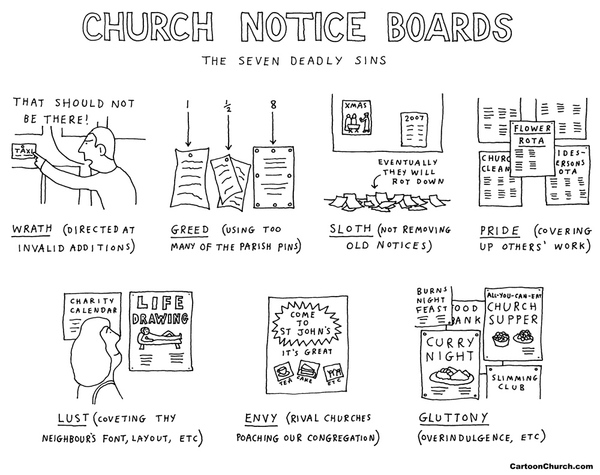 CHURCH NOTICE BOARDS
THE SEVEN DEADLY SINS
THAT SHOULD NOT
BE THERE!
TAXI
WRATH (DIRECTED AT
INVALID ADDITIONS)
1
½
8
GREED (USING TOO
MANY OF THE PARISH PINS)
XMAS
2007
EVENTUALLY
THEY WILL
ROT DOWN
SLOTH (NOT REMOVING
OLD NOTICES)
FLOWER
ROTA
CHURC
CLEAN
IDES-
ERSONS
OTA
PRIDE (COVERING
UP OTHERS' WORK)
CHARITY
CALENDAR
LIFE
DRAWING
LUST (COVETING THY
NEIGHBOUR'S FONT, LAYOUT, ETC)
COME
TO
ST JOHN'S
IT'S GREAT
TEA
CAKE
ETC
ENVY (RIVAL CHURCHES
POACHING OUR CONGREGATION)
BURNS
NIGHT
FEAST
OOD
ANK
ALL-YOU-CAN-EAT
CHURCH
SUPPER
CURRY
NIGHT
SLIMMING
CLUB
GLUTTONY
(OVERINDULGENCE, ETC)
CartoonChurch.com